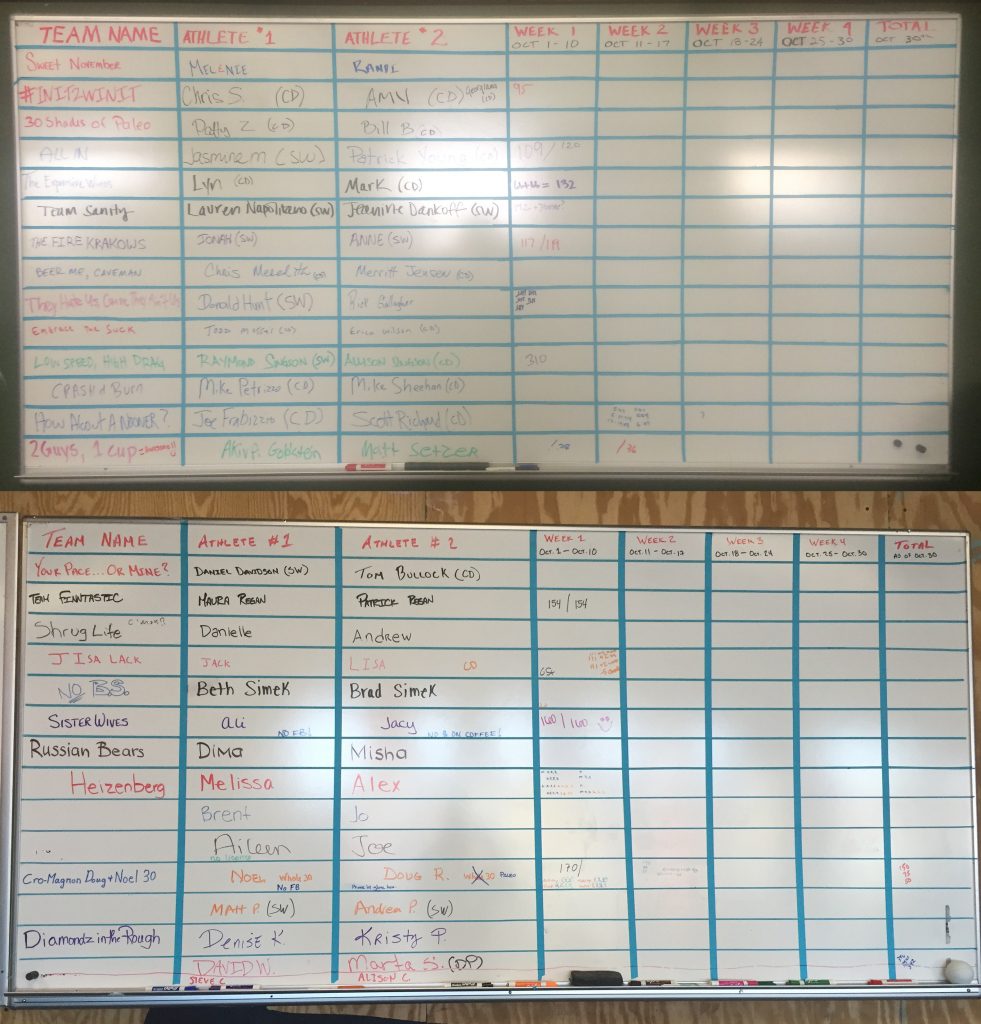 TEAM NAME ATHLETE #1 ATHLETE #2 WEEK 1 WEEK 2 WEEK 3 WEEK 4 TOTAL
OCT 1-10 OCT 11-17 OCT 18-24 OCT 25-30 OCT 30TH
SWEET NOVEMBER MELENIE
#INIT2WINIT Chris S. (CD) AMY (CD) (CD) 95
30 Shades of Paleo Patty Z (CD) Bill B. CD
ALL IN Jasmine M (SW) Patrick Young (CD) 109/120
The Expensive Wines Lyn (CD) Mark (CD) = 132
TEAM Sanity Lauren Napolitano (SW) Jeanine Dankoff (SW)
THE FIRE KRAKOWS JONAH (SW) ANNE (SW) 117/119
BEER ME, CAVEMAN Chris Meredith (CD) Merritt Jensen (CD)
They Hate Us Cause They Ain't Us Donald Hunt (SW) Rick Gallagher
EMBRACE THE SUCK Todd Erica Wilson (CD)
LOW SPEED, HIGH DRAG RAYMOND SINGSON (SW) ALLISON SINGSON (CD) 310
CRASH & Burn Mike Petrizzo (CD) Mike Sheehan (CD)
HOW ABOUT A NOONER? Joe Frabizzio (CD) Scott Richard (CD) ?
2 Guys, 1 cup Akiv P. Goldstein Matt Setzer /36
TEAM NAME ATHLETE #1 ATHLETE # 2 WEEK 1 WEEK 2 WEEK 3 WEEK 4 TOTAL
OCT. 1 - OCT. 10 OCT. 11 - OCT. 17 OCT. 18 - OCT. 24 OCT. 25 - OCT. 30 AS OF OCT. 30
YOUR PACE...OR MINE? DANIEL DAVIDSON (SW) TOM BULLOCK (CD)
TEAM FINNTASTIC MAURA REGAN PATRICK REGAN 154/154
Shrug Life c'mon!! Danielle Andrew
J ISA LACK JACK LISA CD 65+
NO B.S. Beth Simek Brad Simek
SISTER WIVES Ali NO FB! Jacy 160/160
Russian Bears Dima Misha
Heizenberg Melissa Alex
Brent Jo
Aileen Joe
no license
Cro-Magnon Doug + Noel 30 NOEL Whole 30 No FB DOUG R. Wh 30 PALEO 170/
MATT P. (SW) Andrea P. (SW)
Diamondz in the Rough DENISE K. KRISTY P.
DAVID W. Marta S. (DP)
STEVE C. ALISON C.